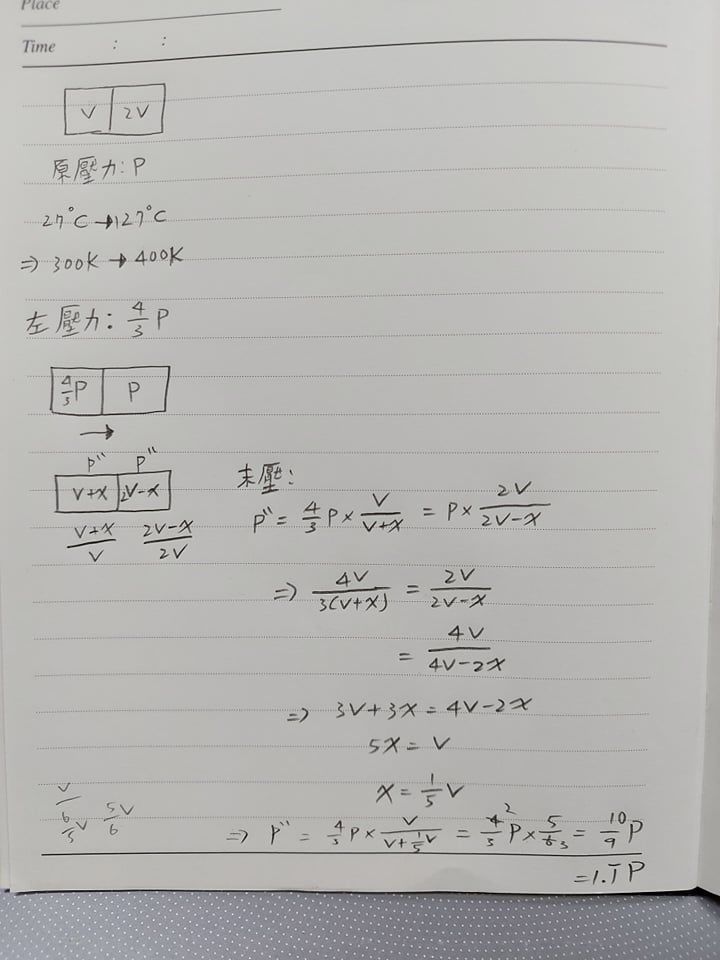 Place
Time : :
V 2V
原壓力: P
27°C → 127°C
⇒ 300K → 400K
左壓力: 4/3 P
4/3 P P
→
P'' P''
V+x 2V-x
(V+x)/V (2V-x)/2V
末壓:
P'' = 4/3 P × V/(V+x) = P × 2V/(2V-x)
⇒ 4V/3(V+x) = 2V/(2V-x)
= 4V/(4V-2x)
⇒ 3V+3x = 4V-2x
5x = V
x = 1/5 V
V/(6/5 V) 5V/6
⇒ P'' = 4/3 P × V/(V+1/5 V) = 4/3 2 P × 5/6 3 = 10/9 P
= 1.1̅ P